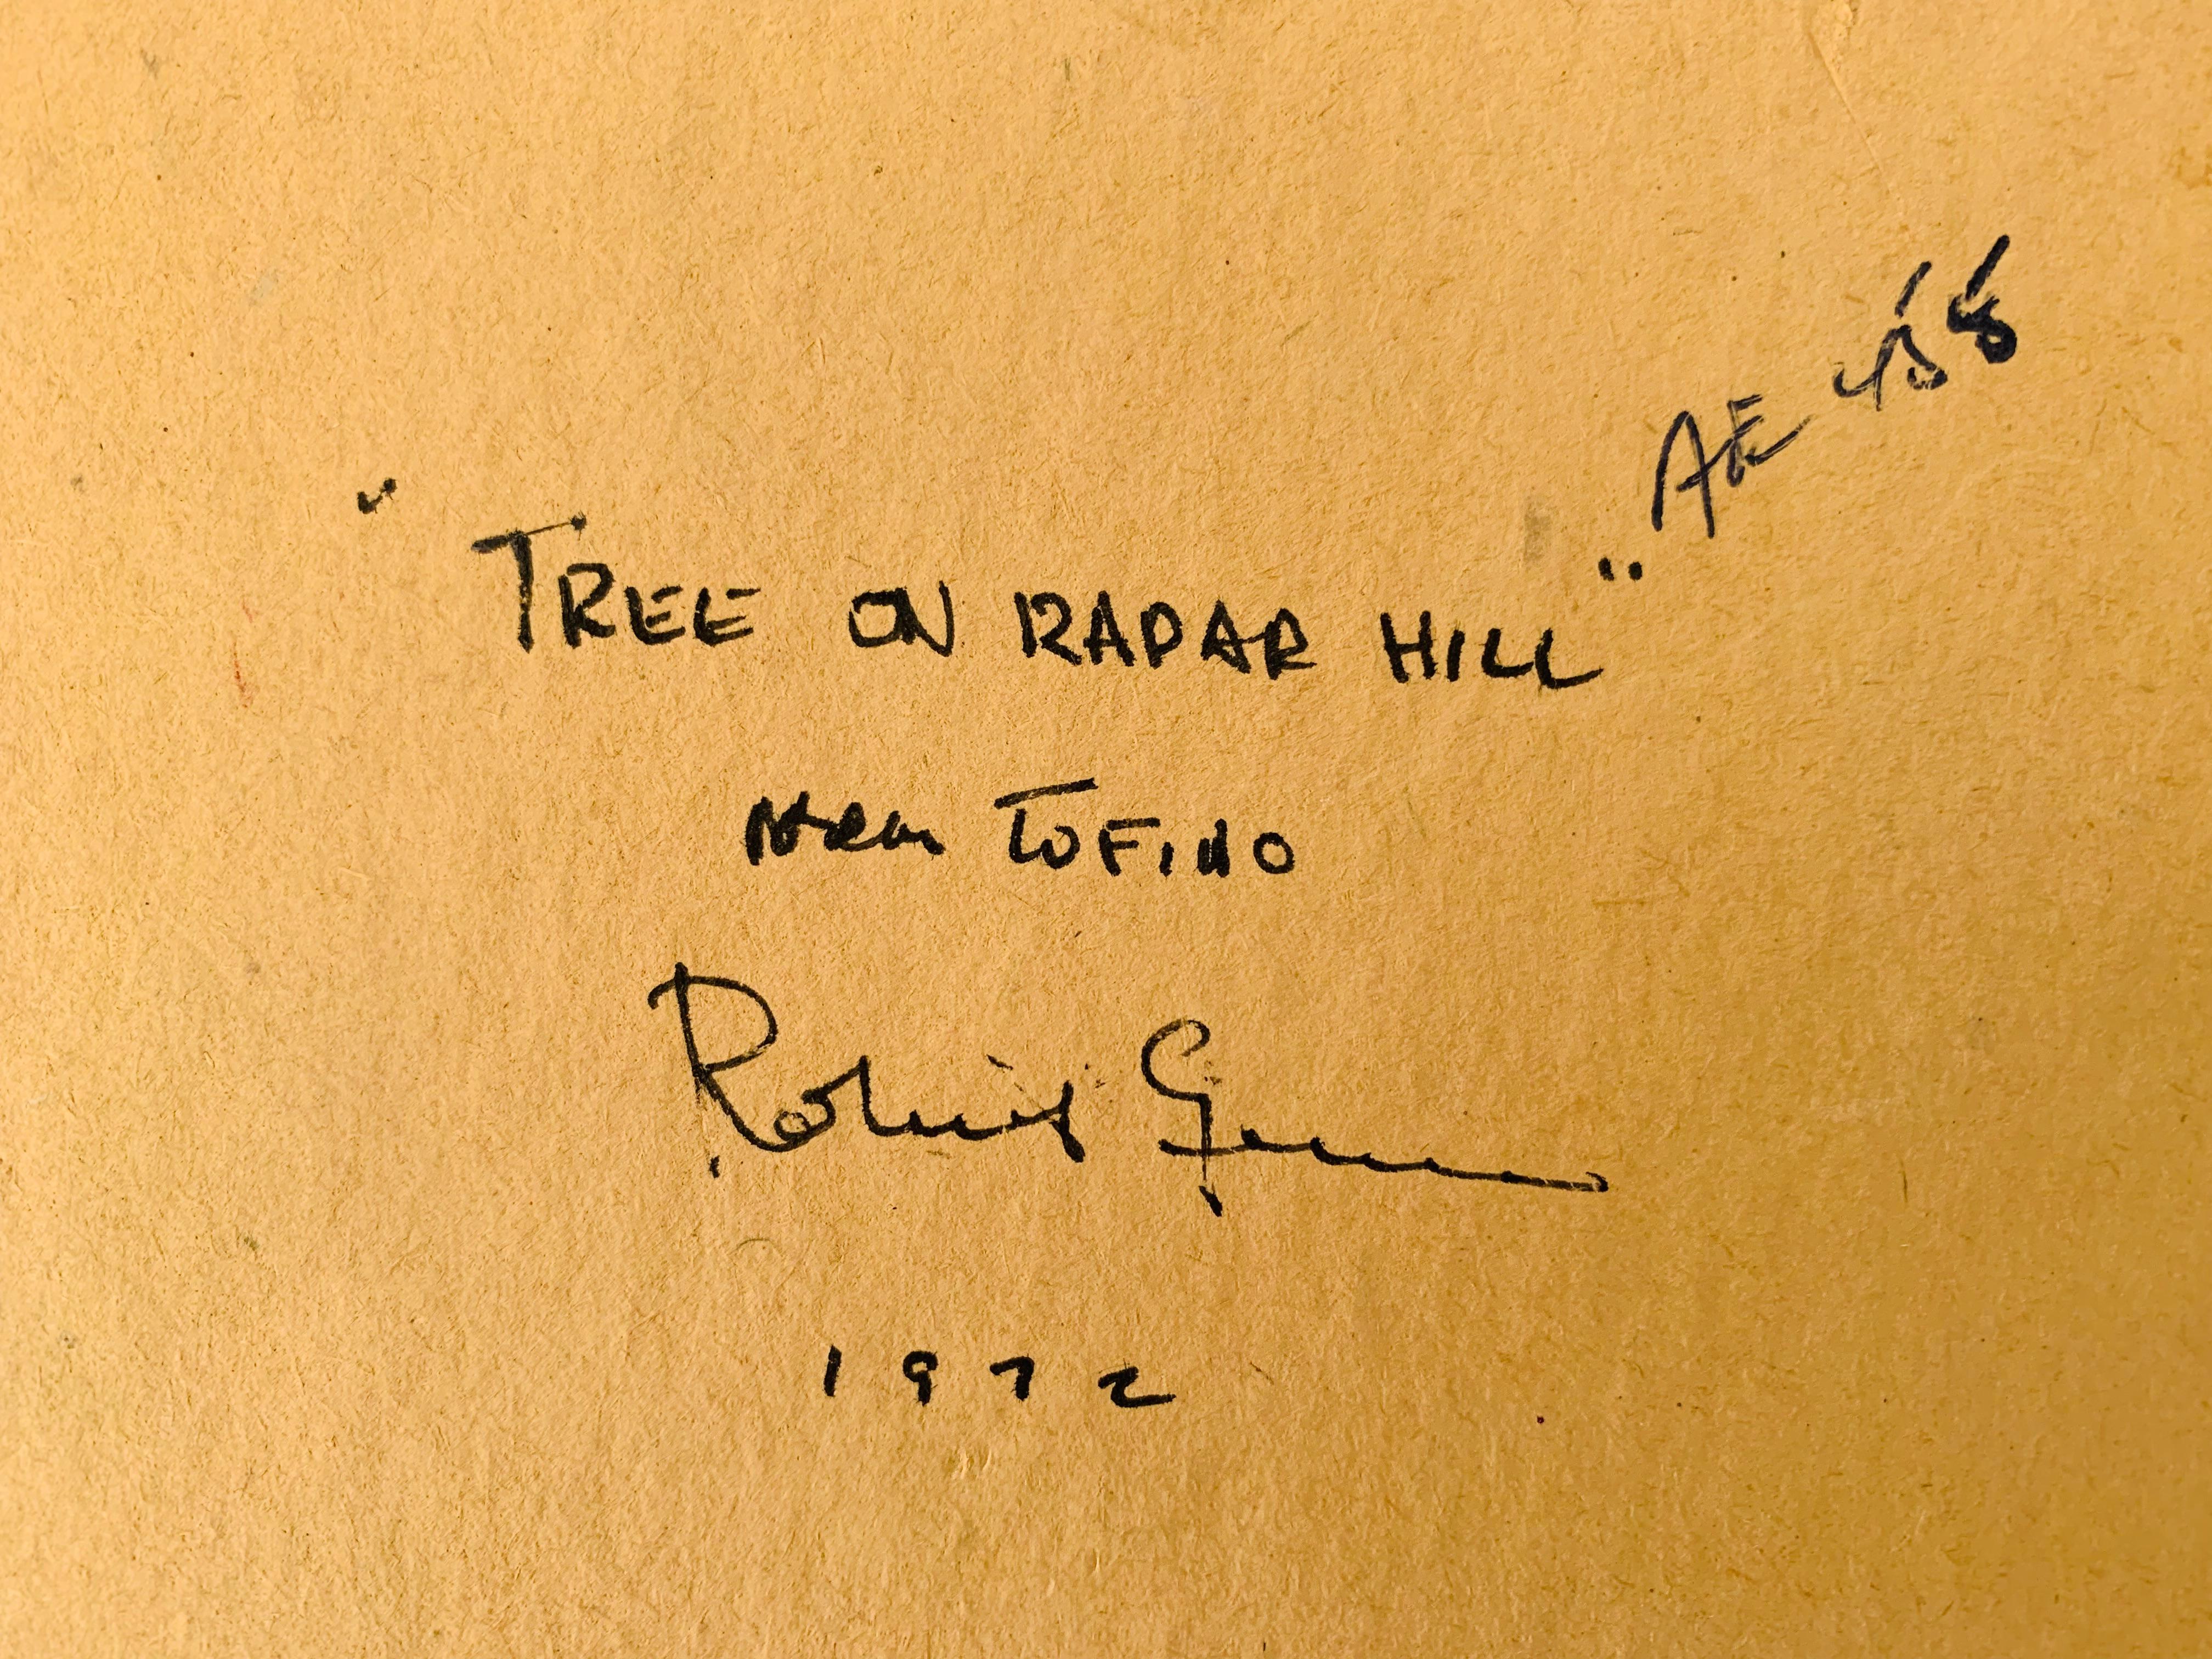 AE 458
"TREE ON RADAR HILL"
near TOFINO
Robert Genn
1972